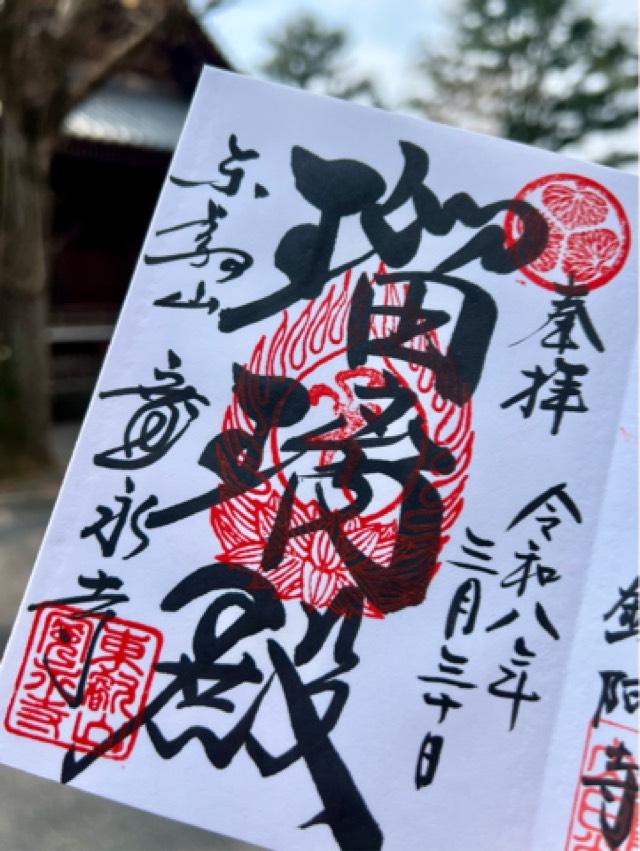 奉拝
令和八年
三月三十日
瑠璃殿
东叡山
寛永寺
東叡山
寛永寺
鑁阿寺